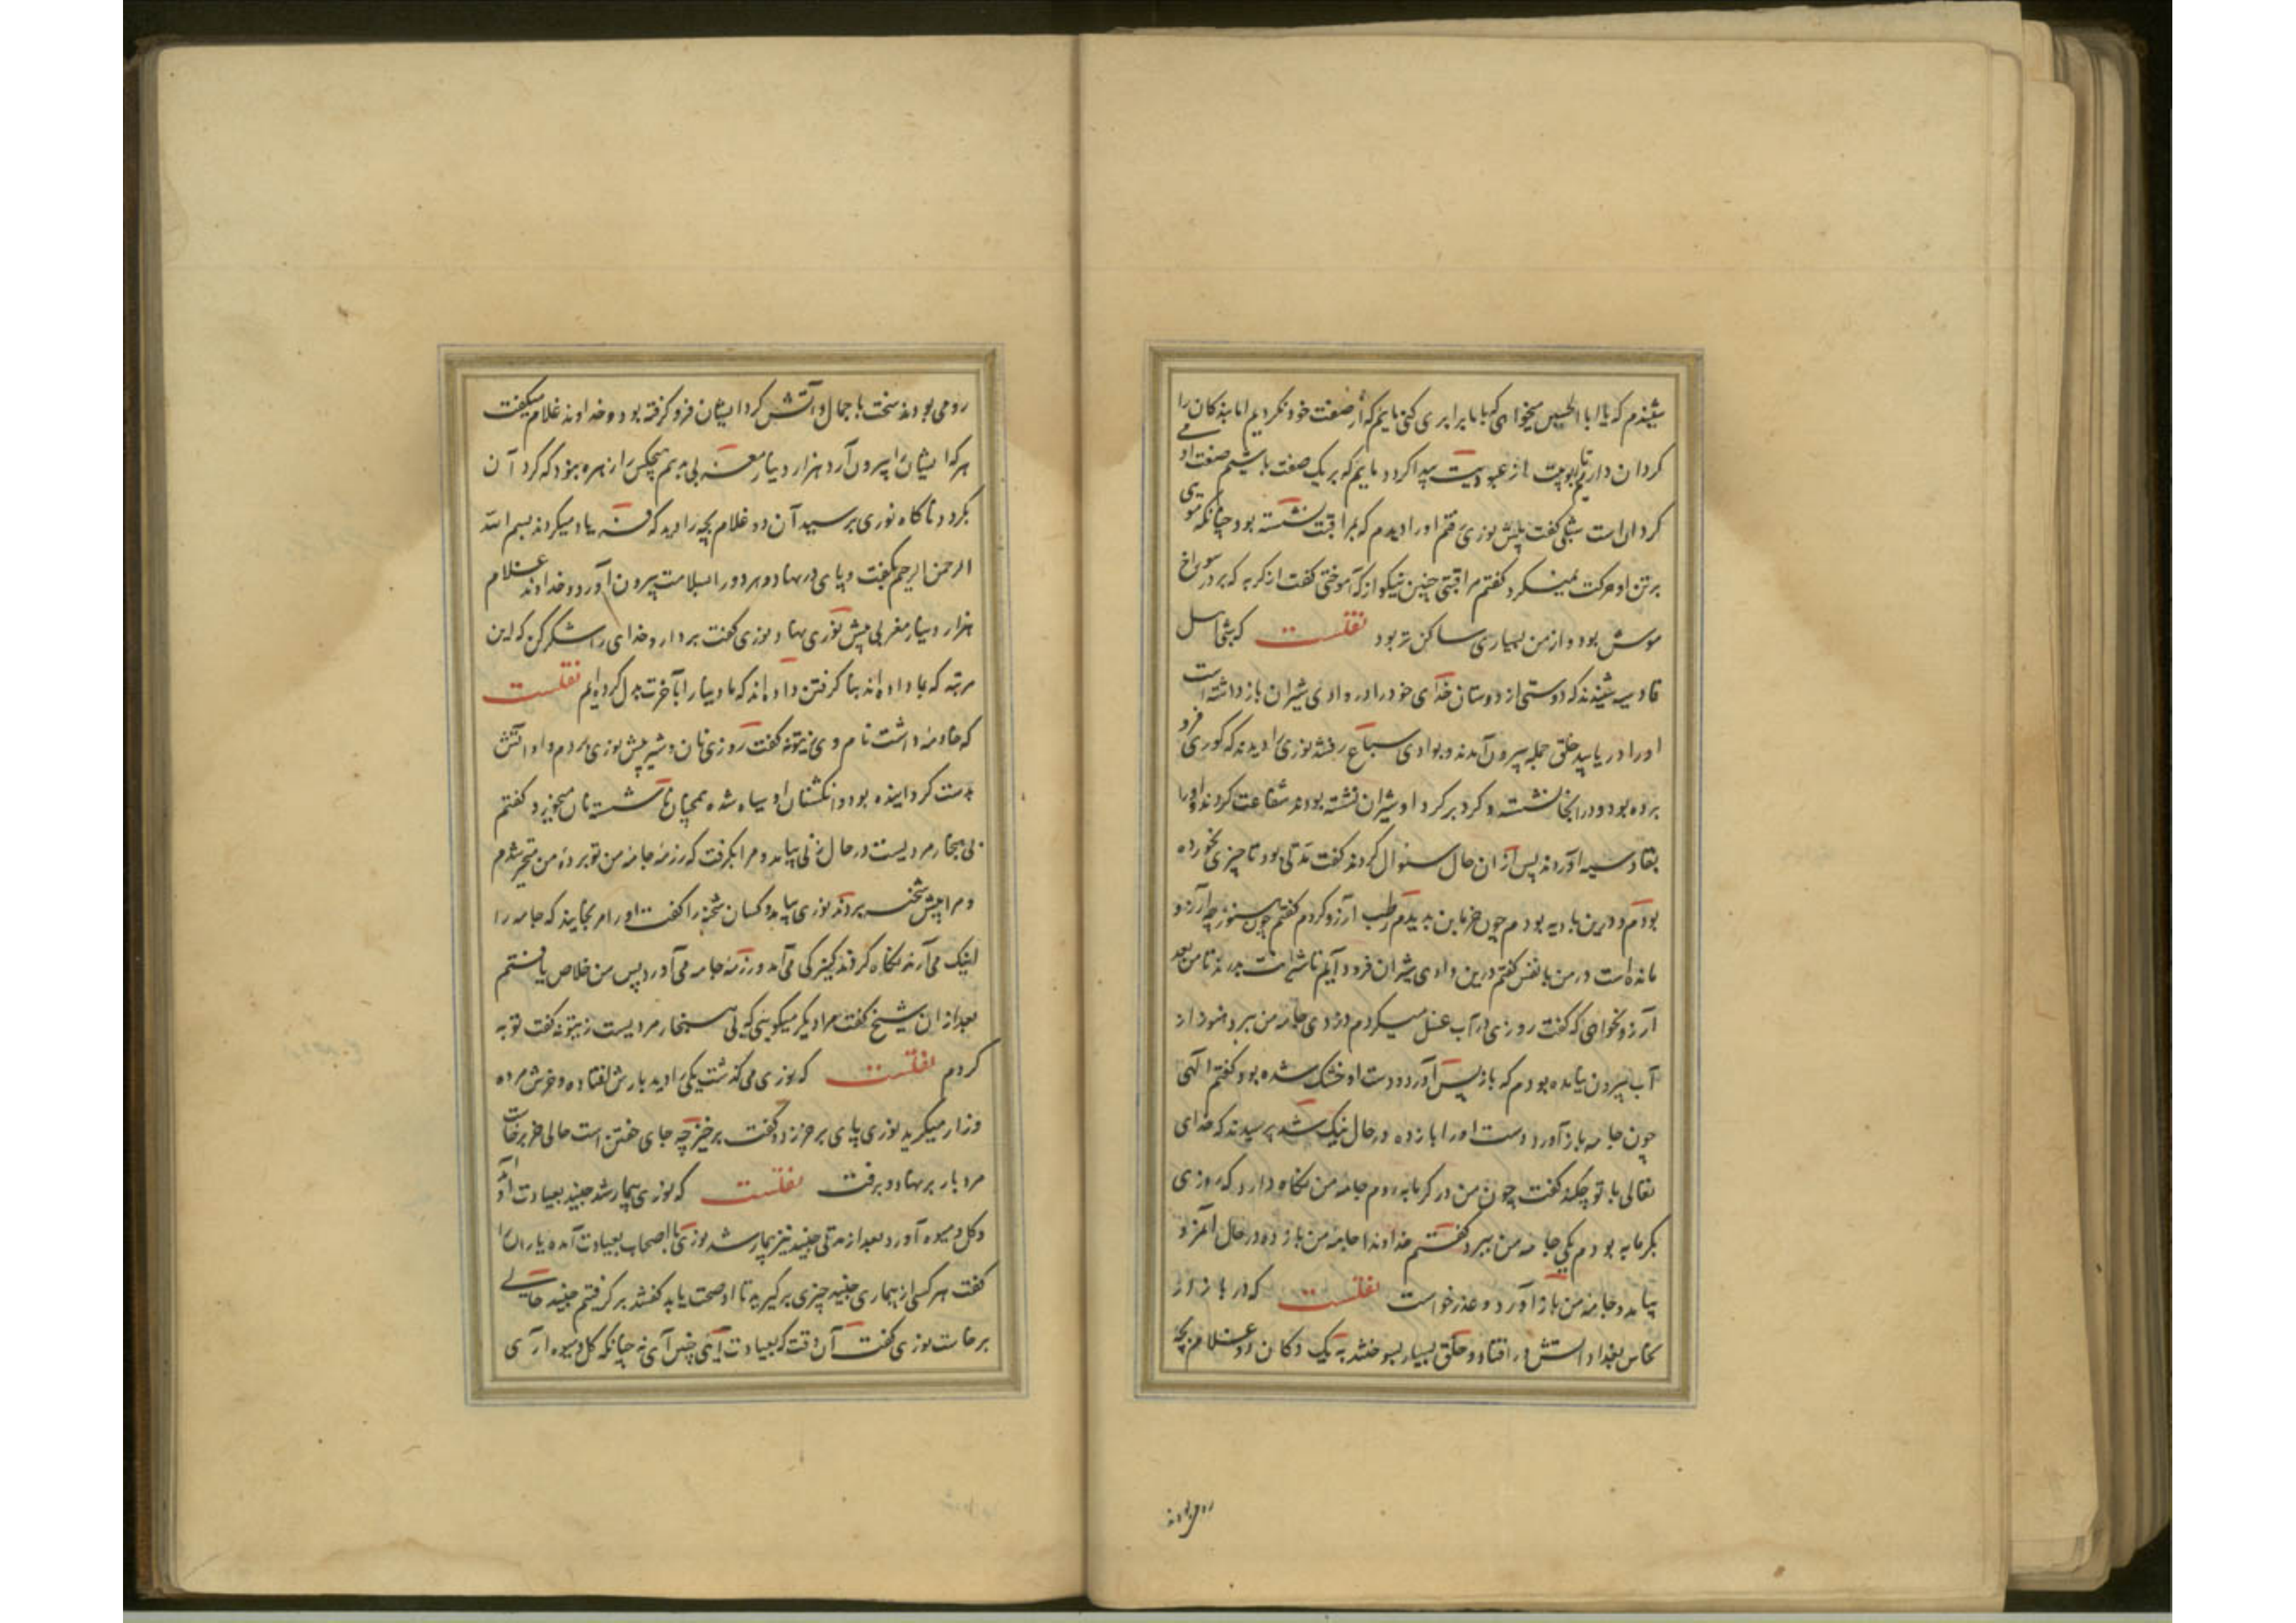 شنیدم که یا ابا الحسین میخواهی که با ما برابری کنی مائیم که از صفت خود نگردیم اما بندگان را
کردان داریم تا ربوبیت ما از عبودیت پیدا کردد مائیم که بر یک صفت باشیم صفت او می
کردان است شبلی گفت پیش نوری رفتم او را دیدم که بمراقبت نشسته بود چنانکه مویی
برتن او حرکت نمیکرد گفتم مراقبتی چنین نیکو از که آموختی گفت از گربه که بر در سوراخ
موش بود و از من بسیاری ساکن تر بود نقلست که شبی اهل
قادسیه شنیدند که دوستی از دوستان خدای خود را در وادی شیران باز داشته است
او را دریابید خلق جمله بیرون آمدند و بوادی سباع رفتند نوری را دیدند که گوری فرو
برده بود و در آنجا نشسته و گرد بر گرد او شیران نشسته بودند شفاعت کردند و او را
بقادسیه آوردند پس از آن حال سئوال کردند گفت مدتی بود تا چیزی نخورده
بودم و درین بادیه بودم چون خرما بن بدیدم رطب آرزو کردم گفتم چون هنوز چه آرزو
مانده است در من با نفس گفتم درین وادی شیران فرود آیم تا شیرانت بدرند تا من بعد
آرزو نخواهی که گفت روزی در آب غسل میکردم دزدی جامه من ببرد هنوز از
آب بیرون نیامده بودم که باز پس آورد و دست او خشک شده بود گفتم الهی
چون جامه باز آورد دست او را باز ده در حال نیک شد پرسیدند که خدای
تعالی با تو چکند گفت چون من در گرمابه روم جامه من نگاه دارد که روزی
بگرمابه بودم یکی جامه من ببرد گفتم خداوندا جامه من باز ده در حال آمرد
بیامد و جامه من باز آورد و عذر خواست نقلست که در بازار
نخاس بغداد آتش در افتاد و خلق بسیار بسوختند به یک دکان دو غلام بچه
رومی بودند
رومی بودند سخت با جمال و آتش گرد ایشان فرو گرفته بود و خداوند غلام میگفت
هر که ایشانرا بیرون آرد هزار دینار مغربی بدهم هیچکس را زهره نبود که گرد آن
بگردد ناگاه نوری برسید آن دو غلام بچه را دید که فریاد میکردند بسم الله
الرحمن الرحیم بگفت و پای در نهاد و هر دو را بسلامت بیرون آورد و خداوند غلام
هزار دینار مغربی پیش نوری نهاد نوری گفت بردار و خدای را شکر کن که این
مرتبه که بما داده اند بنا گرفتن داده اند که ما دینار با آخرت بدل کرده ایم نقلست
که خادمه داشت نام وی زیتونه گفت روزی نان و شیر پیش نوری بردم و او آتش
بدست گردانیده بود و انگشتان او سیاه شده همچنان ناشسته نان میخورد گفتم
بی هنجار مردیست در حال زنی بیامد و مرا بگرفت که رزمه جامه من تو برده من متحیر شدم
و مرا پیش شحنه بردند نوری بیامد و کسان شحنه را گفت او را مرنجانید که جامه را
اینک می آرند نگاه کردند کنیزکی می آمد و رزمه جامه می آورد پس من خلاص یافتم
بعد از آن شیخ گفت مرا دیگر میگویی که بی هنجار مردیست زیتونه گفت توبه
کردم نقلست که نوری می گذشت یکی را دید بارش افتاده و خرش مرده
و زار میگرید نوری پای بر خر زد و گفت برخیز چه جای خفتن است حالی خر برخاست
مرد بار برنهاد و برفت نقلست که نوری بیمار شد جنید بعیادت او آمد
و گل و میوه آورد بعد از مدتی جنید نیز بیمار شد نوری با اصحاب بعیادت آمد یاران را
گفت هر کسی از بیماری جنید چیزی برگیرید تا او صحت یابد گفتند برگرفتیم جنید حالی
برخاست نوری گفت آن وقت که بعیادت آئی چنین آی نه چنانکه گل و میوه آری